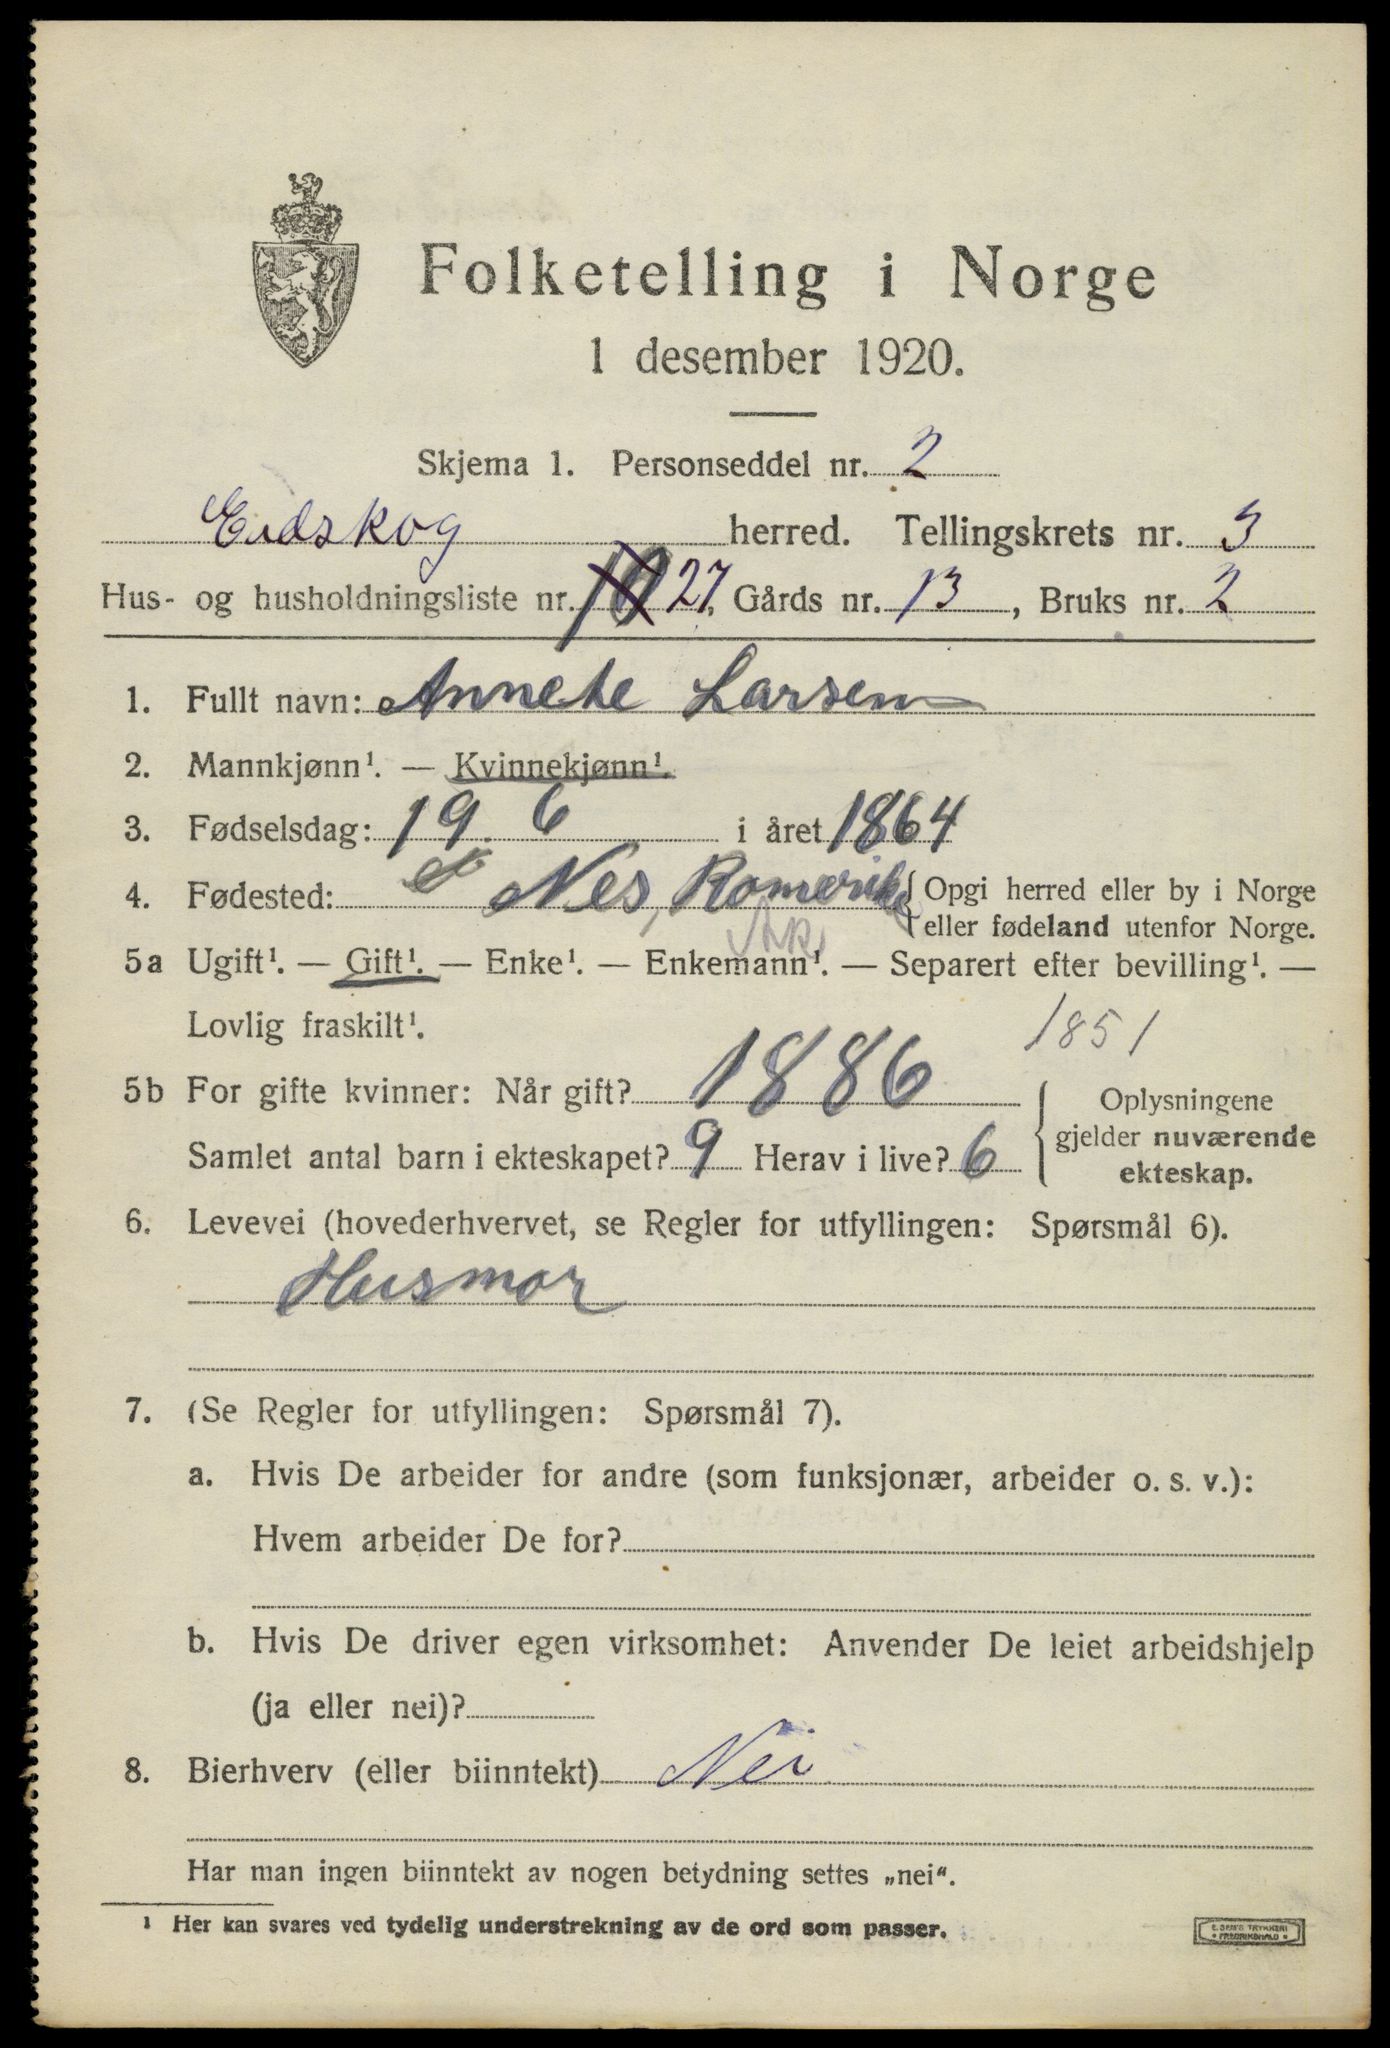 Folketelling i Norge
1 desember 1920.
Skjema 1. Personseddel nr. 2
Eidskog herred. Tellingskrets nr. 3
Hus- og husholdningsliste nr. 10 27, Gårds nr. 13, Bruks nr. 2
1. Fullt navn: Annete Larsen
2. Mannkjønn¹. — Kvinnekjønn¹.
3. Fødselsdag: 19. 6 i året 1864
4. Fødested: Nes, Romerike { Opgi herred eller by i Norge
eller fødeland utenfor Norge.
Ak.
5a Ugift¹. — Gift¹. — Enke¹. — Enkemann¹. — Separert efter bevilling¹. —
Lovlig fraskilt¹.
1851
5b For gifte kvinner: Når gift? 1886 { Oplysningene
gjelder nuværende
Samlet antal barn i ekteskapet? 9 Herav i live? 6
ekteskap.
6. Levevei (hovederhvervet, se Regler for utfyllingen: Spørsmål 6).
Husmor
7. (Se Regler for utfyllingen: Spørsmål 7).
a. Hvis De arbeider for andre (som funksjonær, arbeider o. s. v.):
Hvem arbeider De for?
b. Hvis De driver egen virksomhet: Anvender De leiet arbeidshjelp
(ja eller nei)?
8. Bierhverv (eller biinntekt) Nei
Har man ingen biinntekt av nogen betydning settes „nei“.
¹ Her kan svares ved tydelig understrekning av de ord som passer.
E. SEM'S TRYKKERI
• FREDRIKSHALD •